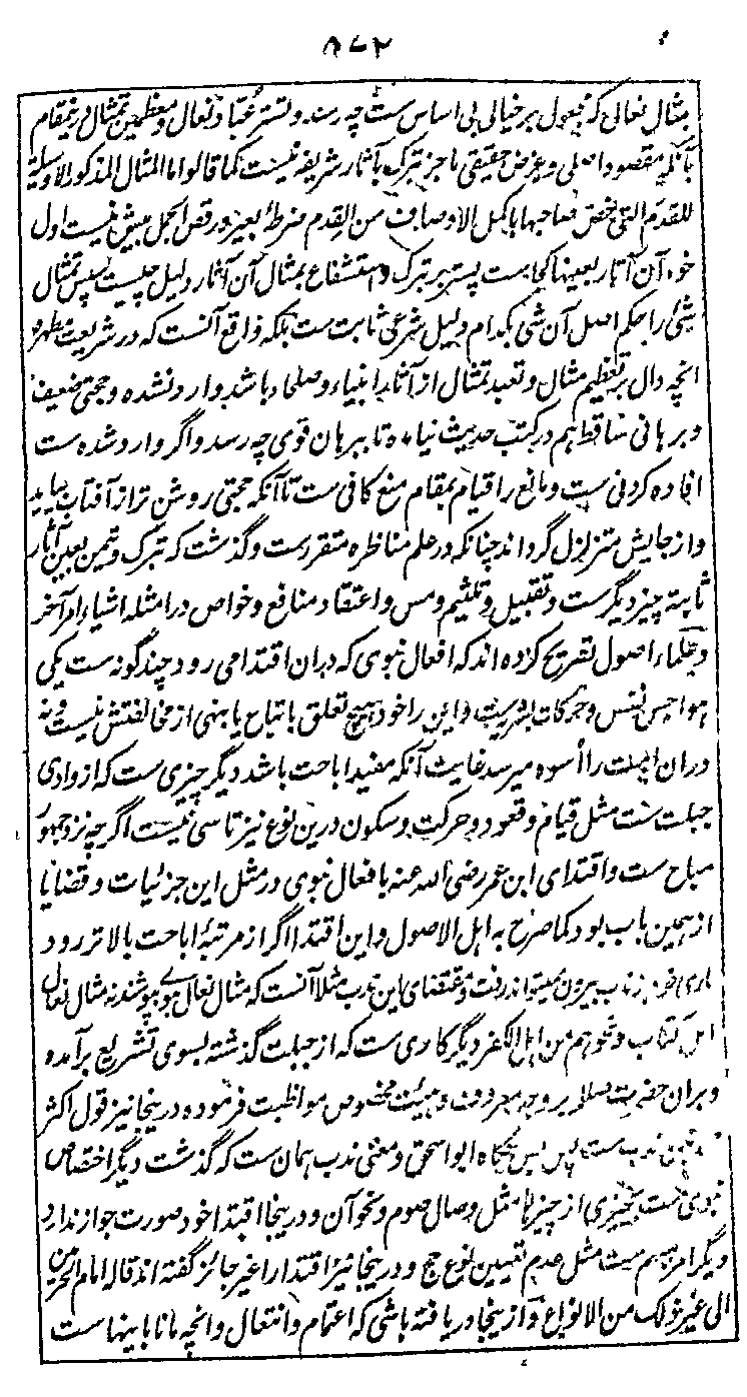 ۸۷۲
مثال نعالی که مجعول بر خیالی بی اساس ست چه رسد و تستر عُبّاد نعال و معظمین تمثال درینمقام
بآنکه مقصود اصلی و غرض حقیقی ما جز تبرک بآثار شریفه نیست کما قالوا اما المثال المذکور الا وسیلة
للقدم التی خص صاحبها باکمل الاوصاف من القِدم ضرطة بعیر در رقص الجمل بیش نیست اول
خود آن آثار بعینها کجاست پستر بر تبرک و استشفاع بمثال آن آثار دلیل چیست سپس تمثال
شئ را حکم اصل آن شئ بکدام دلیل شرعی ثابت ست بلکه واقع آنست که در شریعت مطهره
انچه دال بر تعظیم مثال و تعبد تمثال از آثار انبیاء و صلحاء باشد وارد نشده و حجتی ضعیف
و برهانی ساقط هم در کتب حدیث نیامده تا ببرهان قوی چه رسد و اگر وارد شده ست
افاده کردنی ست و مانع را قیام بمقام منع کافی ست تا آنکه حجتی روشن تر از آفتاب بیاید
و از جایش متزلزل گرداند چنانکه در علم مناظره متقررست و گذشت که تبرک و تیمن بعین آثار
ثابته چیز دیگرست و تقبیل و تلثیم و مس و اعتقاد منافع و خواص در امثله اشیاء امر آخر
و علماء اصول تشریح کرده اند که افعال نبوی که دران اقتدا می رود چند گونه ست یکی
هواجس نفس و حرکات بشریت و این را خود هیچ تعلق باتباع یا بنهی از مخالفتش نیست و نه
دران امت را أسوه میرسد غایت آنکه مفید اباحت باشد دیگر چیزی ست که از وادی
جبلت ست مثل قیام و قعود و حرکت و سکون درین نوع نیز تاسی نیست اگرچه نزد جمهور
مباح ست و اقتدای ابن عمر رضی الله عنه بافعال نبوی در مثل این جزئیات و قضایا
از همین باب بود کما صرح به اهل الاصول و این اقتدا اگر از مرتبهٔ اباحت بالاتر رود
باری خود از ندب بیرون نمیتواند رفت و مقتضای این ندب مثلا آنست که مثال نعال نبوی بپوشند نه مثال نعال
اهل کتاب و نحوهم من اهل الکفر دیگر کاری ست که از جبلت گذشته بسوی تشریع برآمده
و بران حضرت صلعم بر وجه معروف و هیئت مخصوص مواظبت فرموده درینجا نیز قول اکثر
ندب ست ابو اسحق و معنی ندب همان ست که گذشت دیگر اختصاص
نبوی ست بچیزی از چیزها مثل وصال صوم و نحو آن و درینجا اقتدا خود صورت جواز ندارد
دیگر امر مبهم ست مثل عدم تعیین نوع حج و درینجا نیز اقتدا را غیر جائز گفته اند قاله امام الحرمین
الی غیر ذلک من الانواع و ازینجا دریافته باشی که اعتمام و انتعال و انچه مانا باینها ست